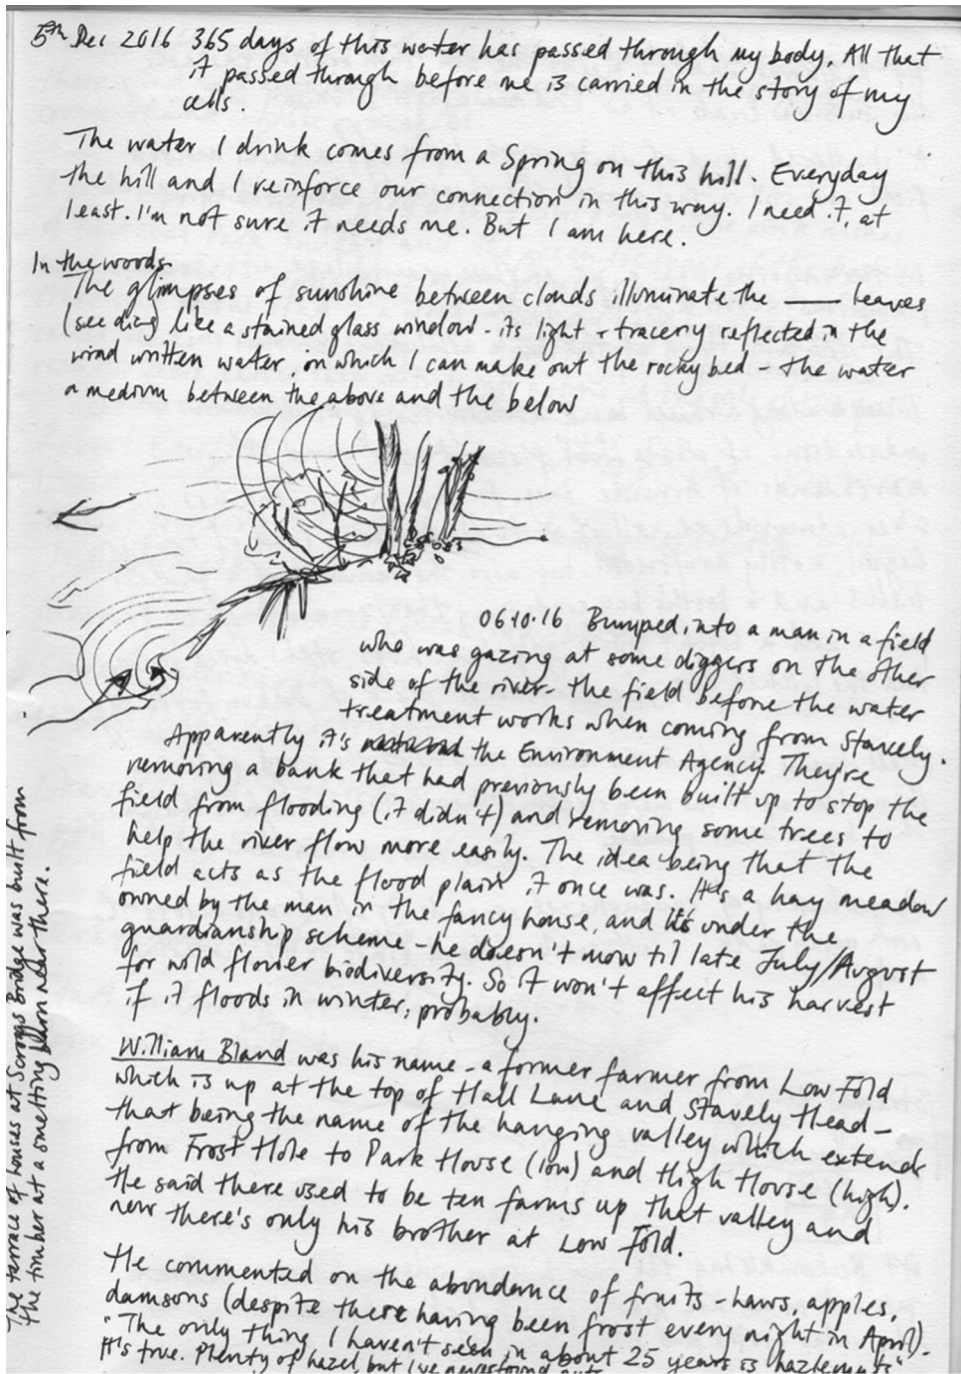 5th Dec 2016 365 days of this water has passed through my body. All that
it passed through before me is carried in the story of my
cells.
The water I drink comes from a Spring on this hill. Everyday
the hill and I reinforce our connection in this way. I need it, at
least. I'm not sure it needs me. But I am here.
In the woods
The glimpses of sunshine between clouds illuminate the —— leaves
(see diag) like a stained glass window - its light + tracery reflected in the
wind written water, in which I can make out the rocky bed - the water
a medium between the above and the below
06.10.16 Bumped into a man in a field
who was gazing at some diggers on the other
side of the river - the field before the water
treatment works when coming from Stavely.
Apparently it's the Environment Agency. They're
removing a bank that had previously been built up to stop the
field from flooding (it didn't) and removing some trees to
help the river flow more easily. The idea being that the
field acts as the flood plain it once was. It's a hay meadow
owned by the man in the fancy house, and it's under the
guardianship scheme - he doesn't mow til late July/August
for wild flower biodiversity. So it won't affect his harvest
if it floods in winter, probably.
William Bland was his name - a former farmer from Low Fold
which is up at the top of Hall Lane and Stavely Head -
that being the name of the hanging valley which extends
from Frost Hole to Park House (low) and High House (high).
He said there used to be ten farms up that valley and
now there's only his brother at Low Fold.
He commented on the abundance of fruits - haws, apples,
damsons (despite there having been frost every night in April).
"The only thing I haven't seen in about 25 years is hazlenuts"
It's true. Plenty of hazel, but I've never found
The terrace of houses at Scroggs Bridge was built from
the timber at a smelting barn near there.